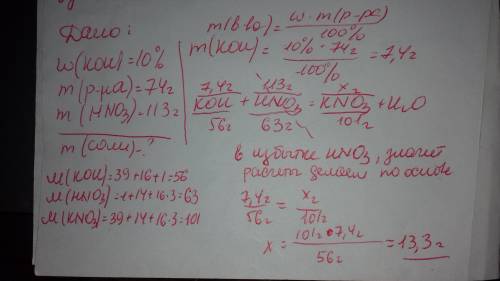 Дано:
w(KOH)=10%
m(р-ра)=74г
m(HNO3)=113г
m(соли)-?
M(KOH)=39+16+1=56
M(HNO3)=1+14+16·3=63
M(KNO3)=39+14+16·3=101
m(в-ва)=w·m(р-ра)/100%
m(KOH)=10%·74г/100%=7,4г
7,4г 113г xг
KOH + HNO3 = KNO3 + H2O
56г 63г 101г
в избытке HNO3, значит
расчёт делаем по основ
7,4г/56г = xг/101г
x = 101г·7,4г/56г = 13,3г